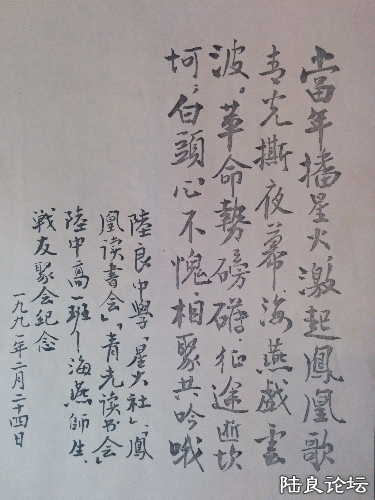 當年播星火,激起鳳凰歌
青光撕夜幕,海燕戲雲
波。革命勢磅礴,征途坎
坷,白頭心不愧,相聚共吟哦
陸良中學「星火社」、「鳳
凰读書会」、「青光读书会」
陸中高一班—海燕師生、
戦友聚会紀念
一九九一年二月二十四日
陆良论坛